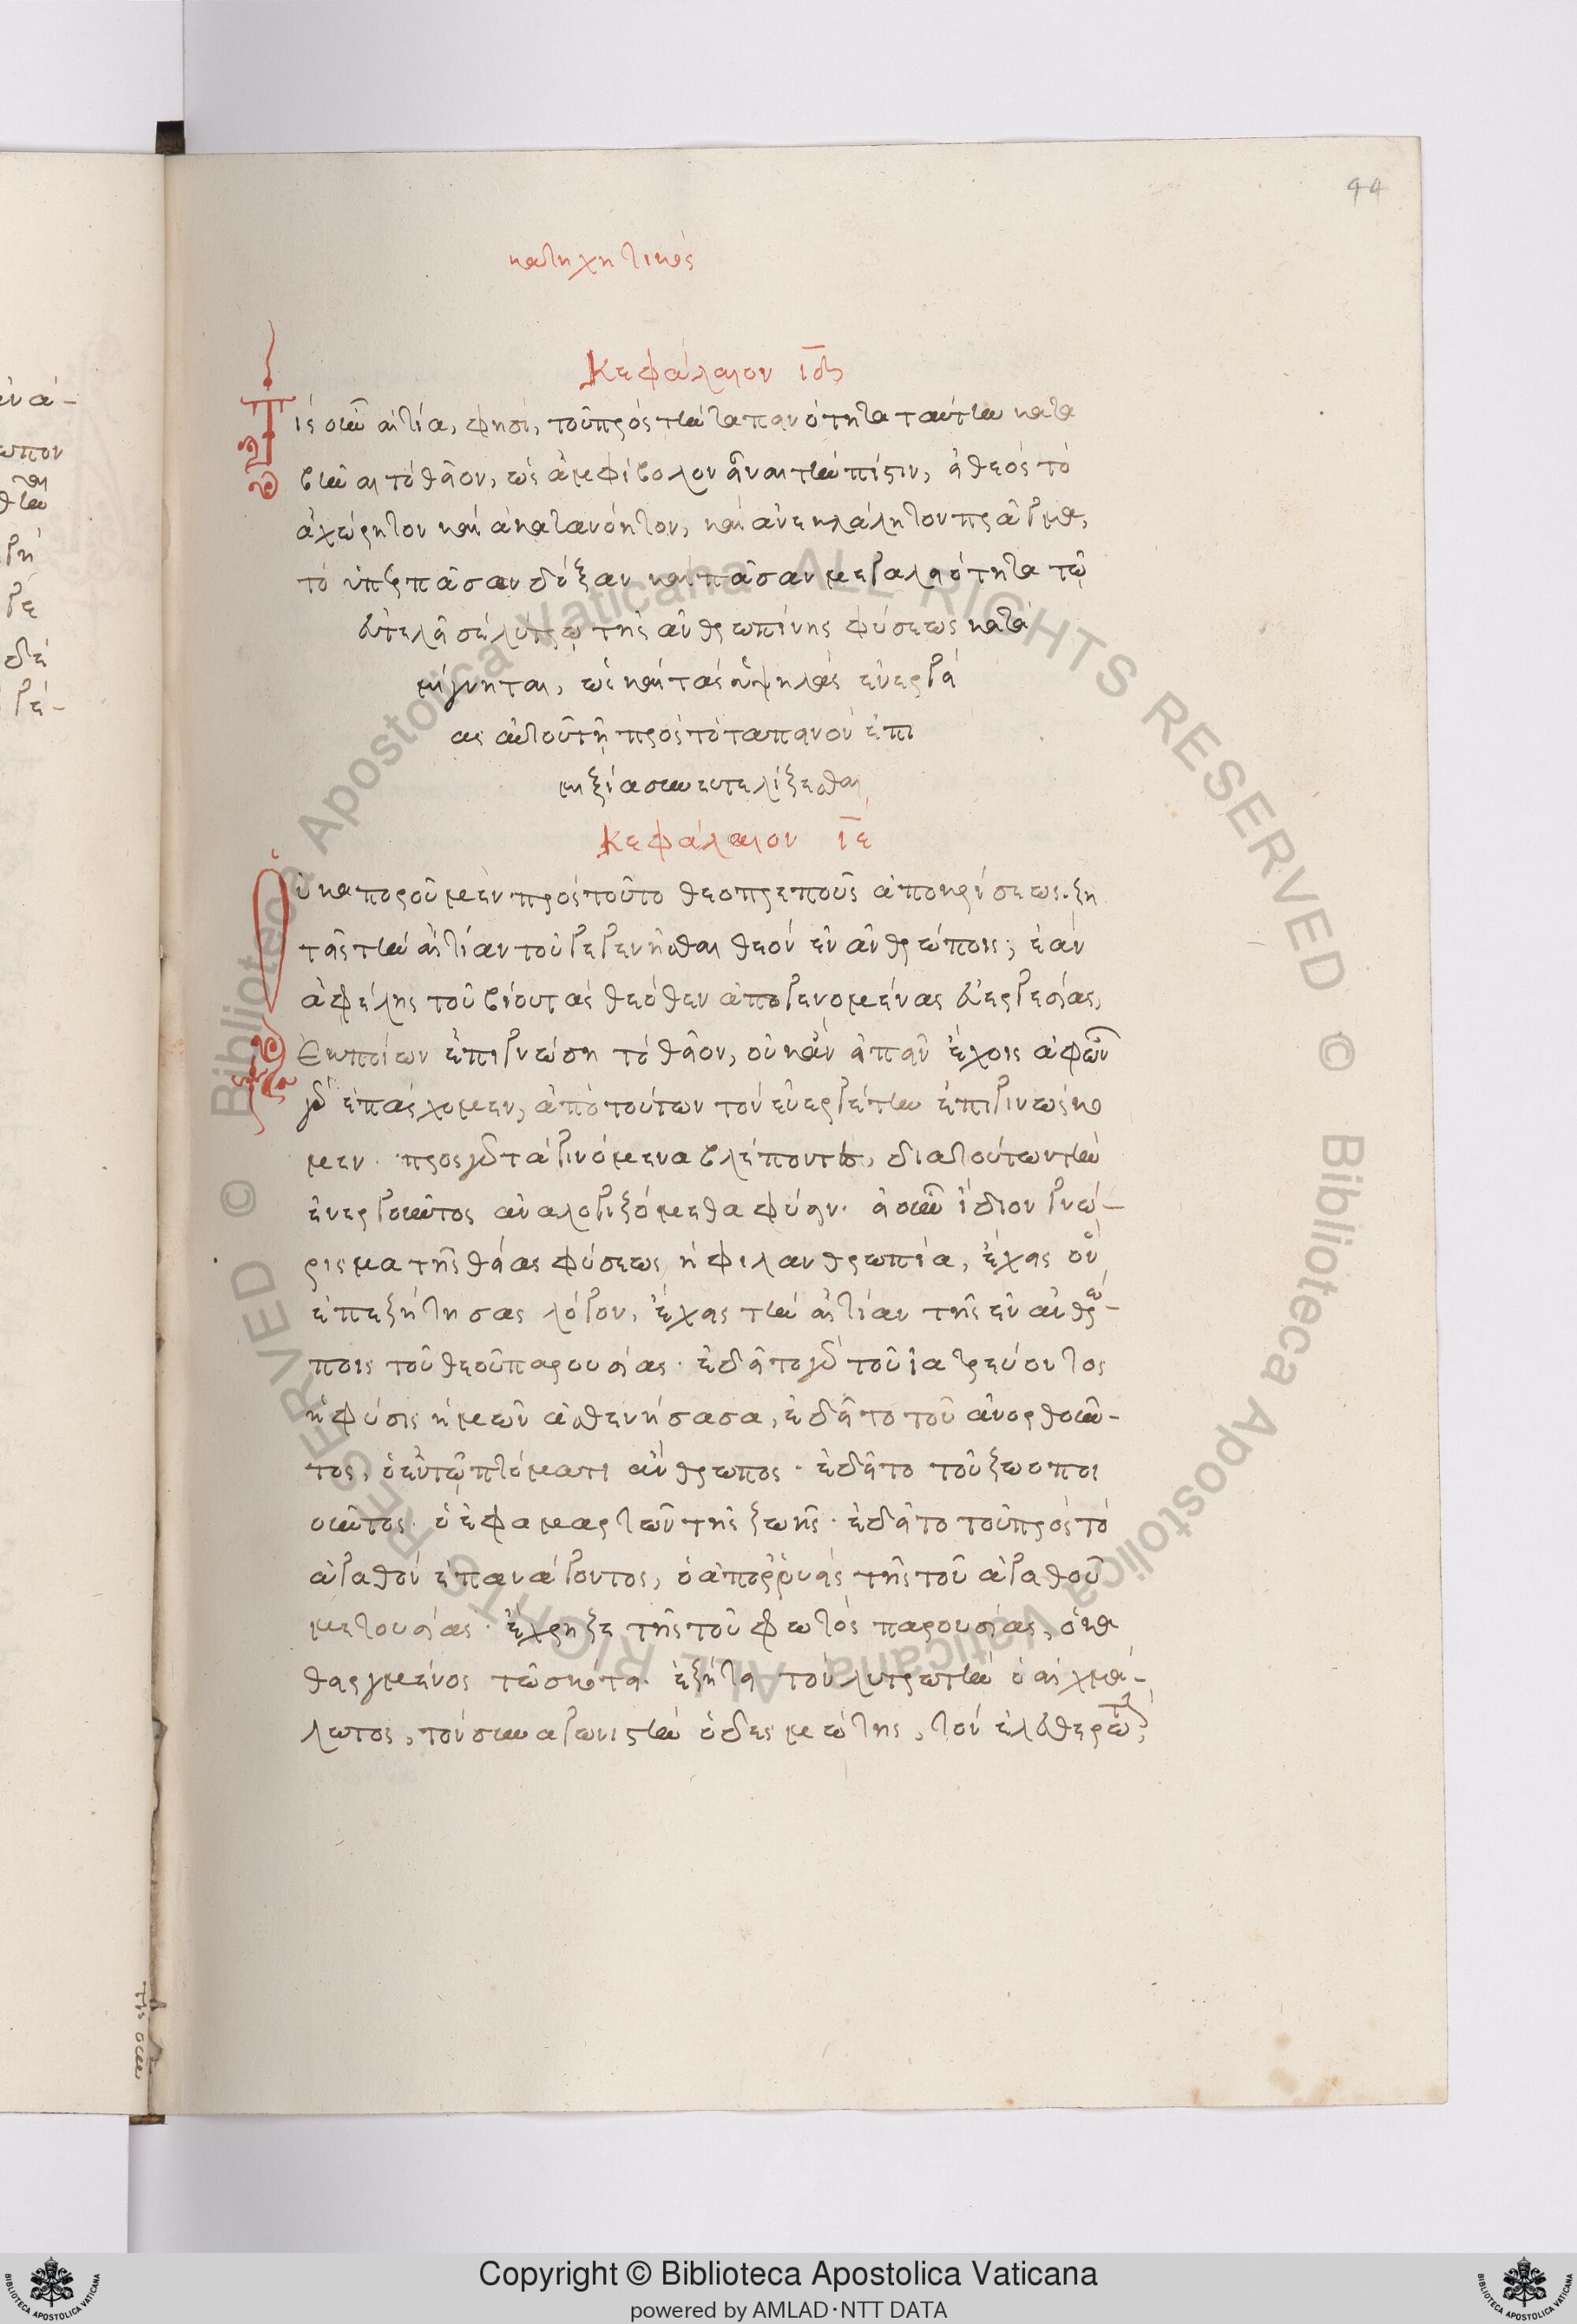 44
κατηχητικὸς
Κεφάλαιον ιδ
Τίς οὖν αἰτία, φησί, τοῦ πρὸς τὴν ταπεινότητα ταύτην κατα
βῆναι τὸ θεῖον, ὡς ἀμφίβολον εἶναι τὴν πίστιν, εἰ θεὸς τὸ
ἀχώρητον καὶ ἀκατανόητον, καὶ ἀνεκλάλητον πρᾶγμα,
τὸ ὑπὲρ πᾶσαν δόξαν καὶ πᾶσαν μεγαλειότητα τῷ
εὐτελεῖ σελύτρῳ τῆς ἀνθρωπίνης φύσεως κατα
μίγνυται, ὡς καὶ τὰς ὑψηλὰς ἐνεργεί
ας αὐτοῦ τῇ πρὸς τὸ ταπεινὸν ἐπι
μιξίᾳ συνευτελίζεσθαι
Κεφάλαιον ιε
Οὐκ ἀποροῦμεν πρὸς τοῦτο θεοπρεποῦς ἀποκρίσεως. ζη
τεῖς τὴν αἰτίαν τοῦ γεγενῆσθαι θεὸν ἐν ἀνθρώποις; ἐὰν
ἀφέλῃς τοῦ βίου τὰς θεόθεν ἀπογενομένας εὐεργεσίας,
ἐκ ποίων ἐπιγνώσῃ τὸ θεῖον, οὐκ ἂν εἰπεῖν ἔχοις. ἀφ' ὧν
γὰρ εὖ πάσχομεν, ἀπὸ τούτων τὸν εὐεργέτην ἐπιγινώσκο
μεν. πρὸς γὰρ τὰ γινόμενα βλέποντες, διὰ τούτων τὴν
ἐνεργοῦντος ἀναλογιζόμεθα φύσιν. εἰ οὖν ἴδιον γνώ-
ρισμα τῆς θείας φύσεως ἡ φιλανθρωπία, ἔχεις ὃν
ἐπεζήτησας λόγον, ἔχεις τὴν αἰτίαν τῆς ἐν ἀνθρώ-
ποις τοῦ θεοῦ παρουσίας. ἐδεῖτο γὰρ τοῦ ἰατρεύοντος
ἡ φύσις ἡμῶν ἀσθενήσασα, ἐδεῖτο τοῦ ἀνορθοῦν-
τος, ὁ ἐν τῷ πτώματι ἄνθρωπος. ἐδεῖτο τοῦ ζωοποι
οῦντος. ὁ ἐφαμαρτῶν τῆς ζωῆς. ἐδεῖτο τοῦ πρὸς τὸ
ἀγαθὸν ἐπανάγοντος, ὁ ἀπορρυεὶς τῆς τοῦ ἀγαθοῦ
μετουσίας. ἔχρηζε τῆς τοῦ φωτὸς παρουσίας, ὁ κα
θειργμένος τῷ σκότει. ἐζήτει τὸν λυτρωτὴν ὁ αἰχμά-
λωτος, τὸν συναγωνιστὴν ὁ δεσμώτης, τὸν ἐλευθερωτὴν,
Copyright © Biblioteca Apostolica Vaticana
powered by AMLAD·NTT DATA